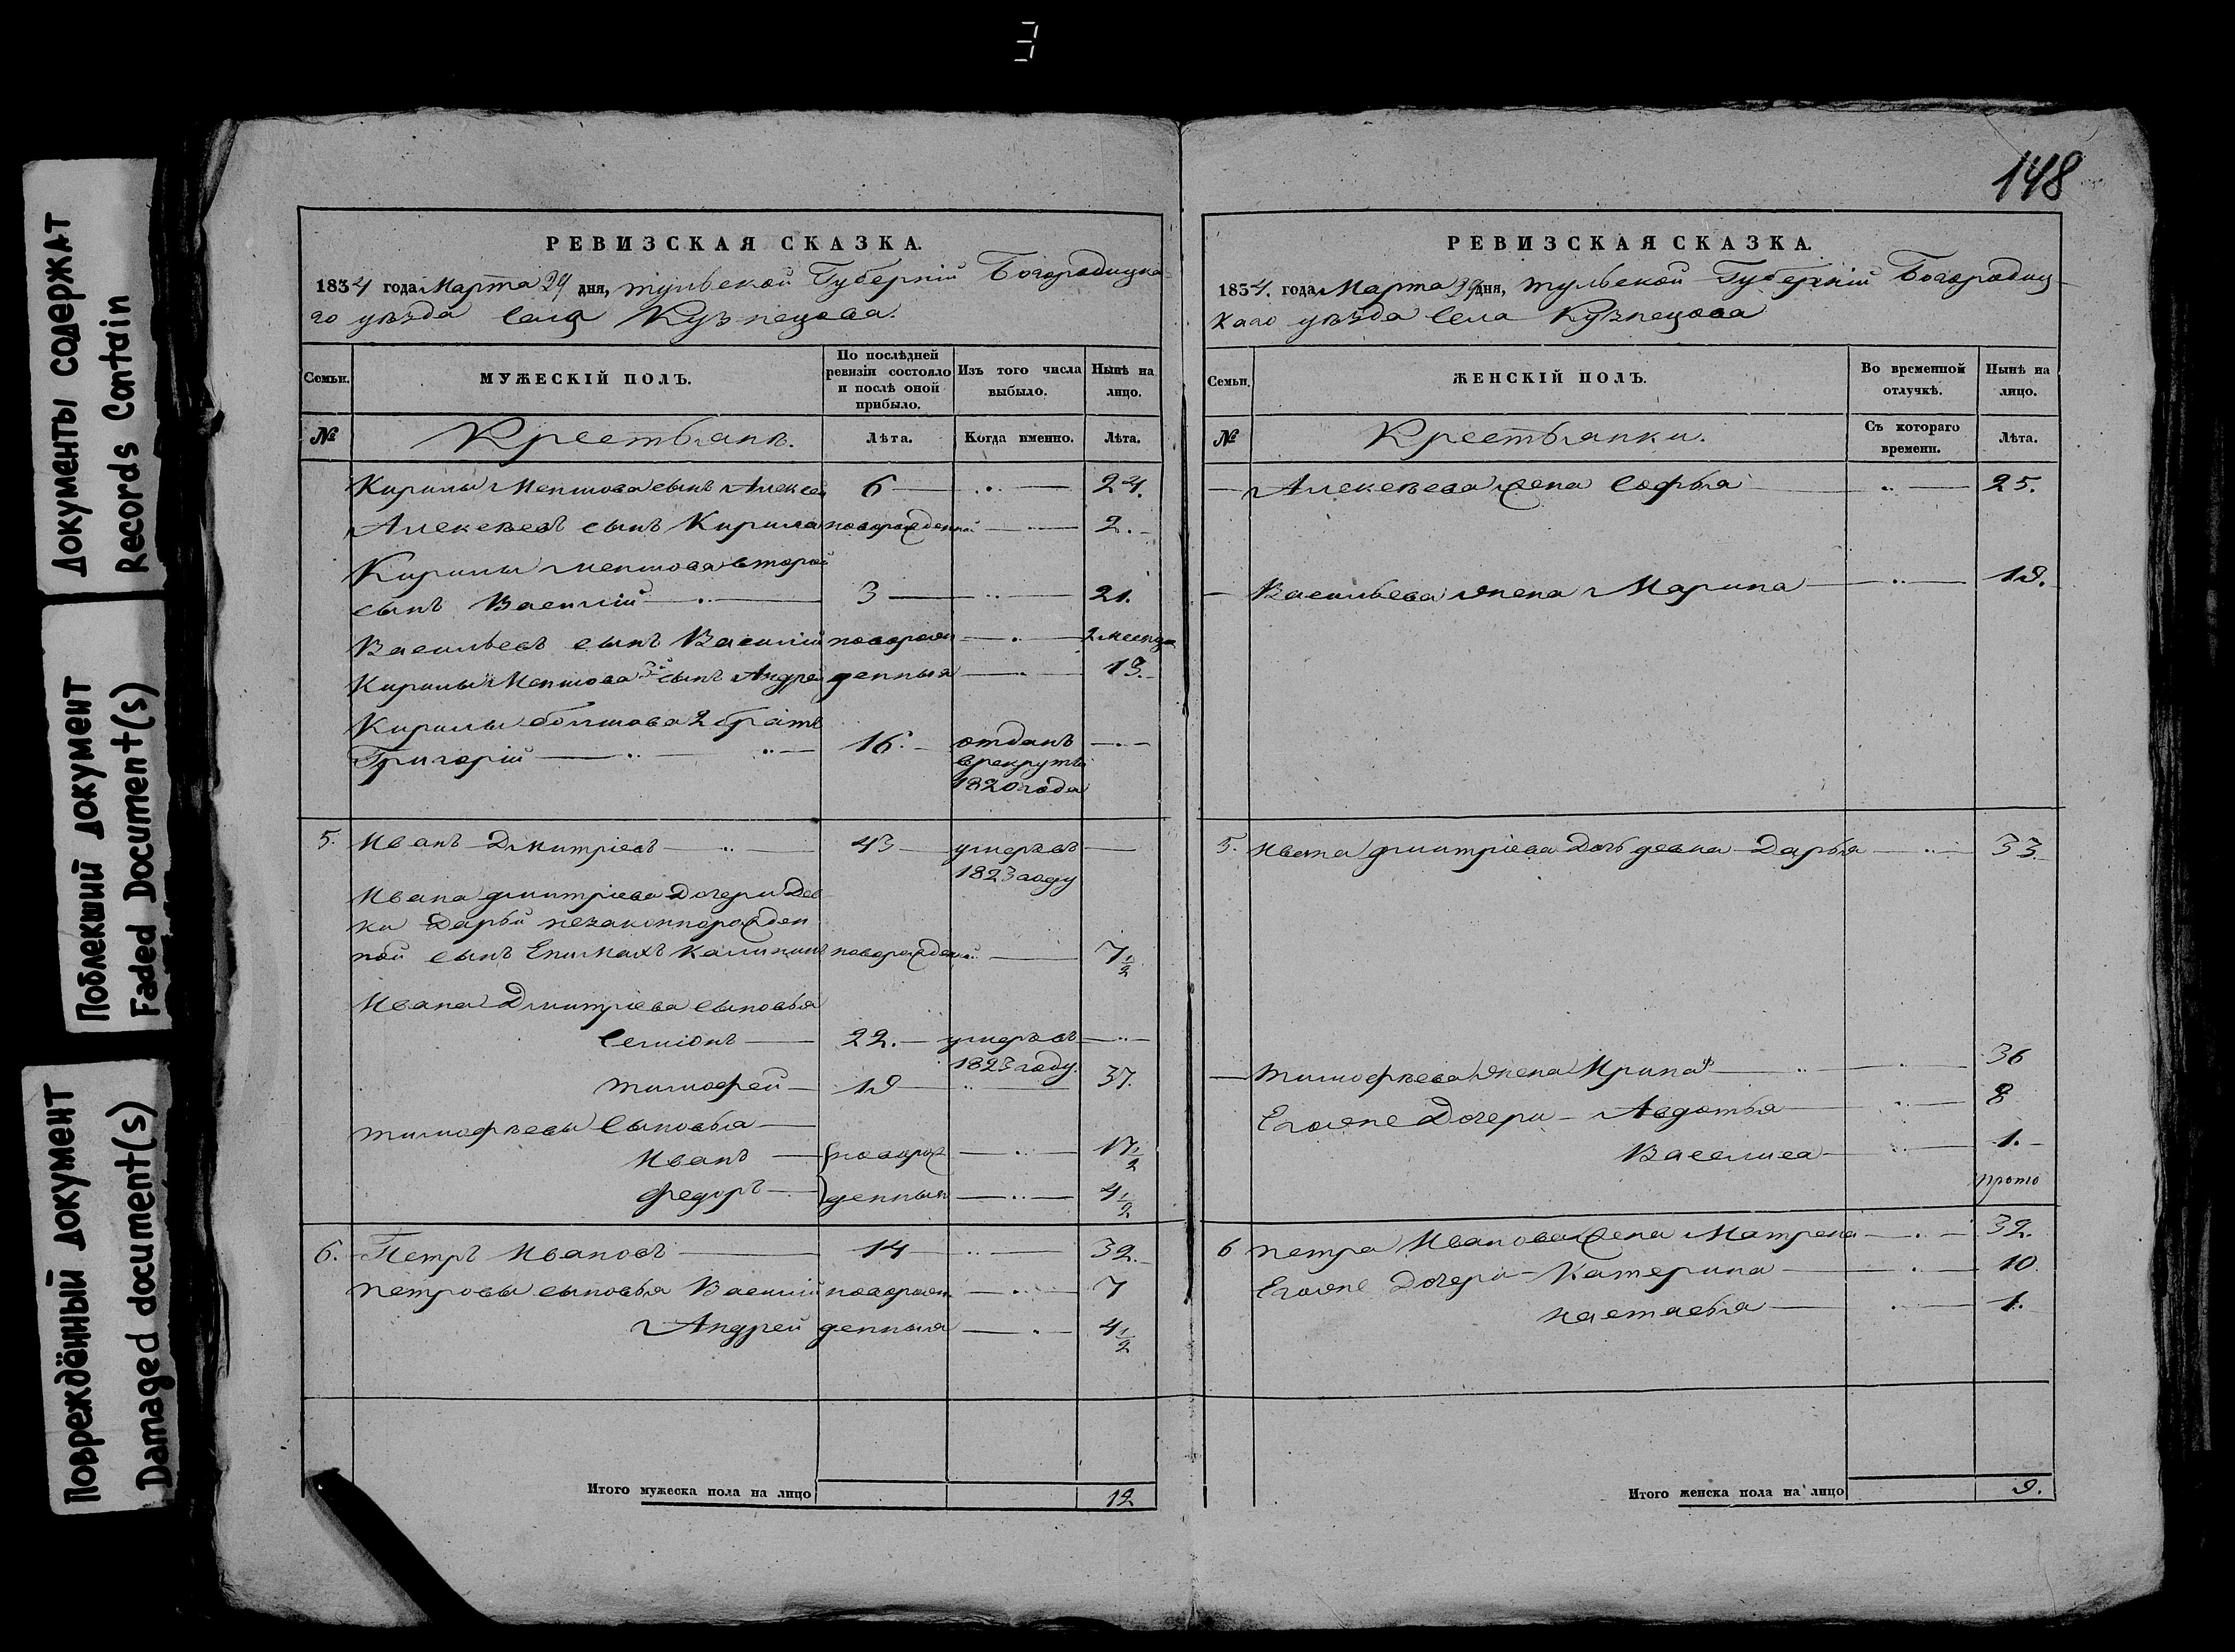 Документы содержат
Records Contain
Поблекший документ
Faded Document(s)
Повреждённый документ
Damaged document(s)
РЕВИЗСКАЯ СКАЗКА.
1834 года Марта 29 дня, тульской Губерніи Богородицка
го уѣзда Села Кузнецова.
Семьи.
МУЖЕСКІЙ ПОЛЪ.
По послѣдней ревизіи состояло и послѣ оной прибыло.
Изъ того числа выбыло.
Нынѣ на лицо.
№ Крестьянъ. Лѣта. Когда именно. Лѣта.
Кирилы Меншова сынъ Алексей 6 — 24.
Алексѣевъ сынъ Кирила новорожденной — 2.
Кирилы меншова второй
сынъ Василий — 3 — 21.
Васильевъ сынъ Василий новорож — 2 месяца
Кирилы Меншова 3й сынъ Андрей денныя — 13.
Кирилы болшова 2 братъ
Григорій — 16. — отданъ —
врекруты
1820 года
5. Иванъ Дмитріевъ — 43 — умеръ въ —
1823 году
Ивана дмитріева Дочери Дев
ки Дарьи незаконнорожден
ной сынъ Епимахъ Калининъ новорожденый — 7 1/2
Ивана Дмитріева сыновья
Семіонъ — 22. — умеръ въ —
1823 году.
тимофей — 19 — 37.
тимофѣевы Сыновья —
Иванъ — новорож — 17 1/2
федоръ — денныя — 4 1/2
6. Петръ Ивановъ — 14 — 32.
петровы сыновья Василий новорож — 7
Андрей денныя — 4 1/2
Итого мужеска пола на лицо 12
148
РЕВИЗСКАЯ СКАЗКА.
1834. года Марта 29 дня, тульской Губерніи Богородиц
каго уѣзда Села Кузнецова
Семьи.
ЖЕНСКІЙ ПОЛЪ.
Во временной отлучкѣ.
Нынѣ на лицо.
№ Крестьянки. Съ котораго времени. Лѣта.
— Алексѣева жена Софья — 25.
— Васильева жена Марина — 19.
5. Ивана дмитріева Дочь девка Дарья — 33.
— тимофѣева жена Ирина — 36
Егожне Дочери — Авдотья — 8
Василиса — 1.
6 петра Иванова жена Матрена — 32.
Егожне Дочери — Катерина — 10.
настасья — 1.
Итого женска пола на лицо 9.